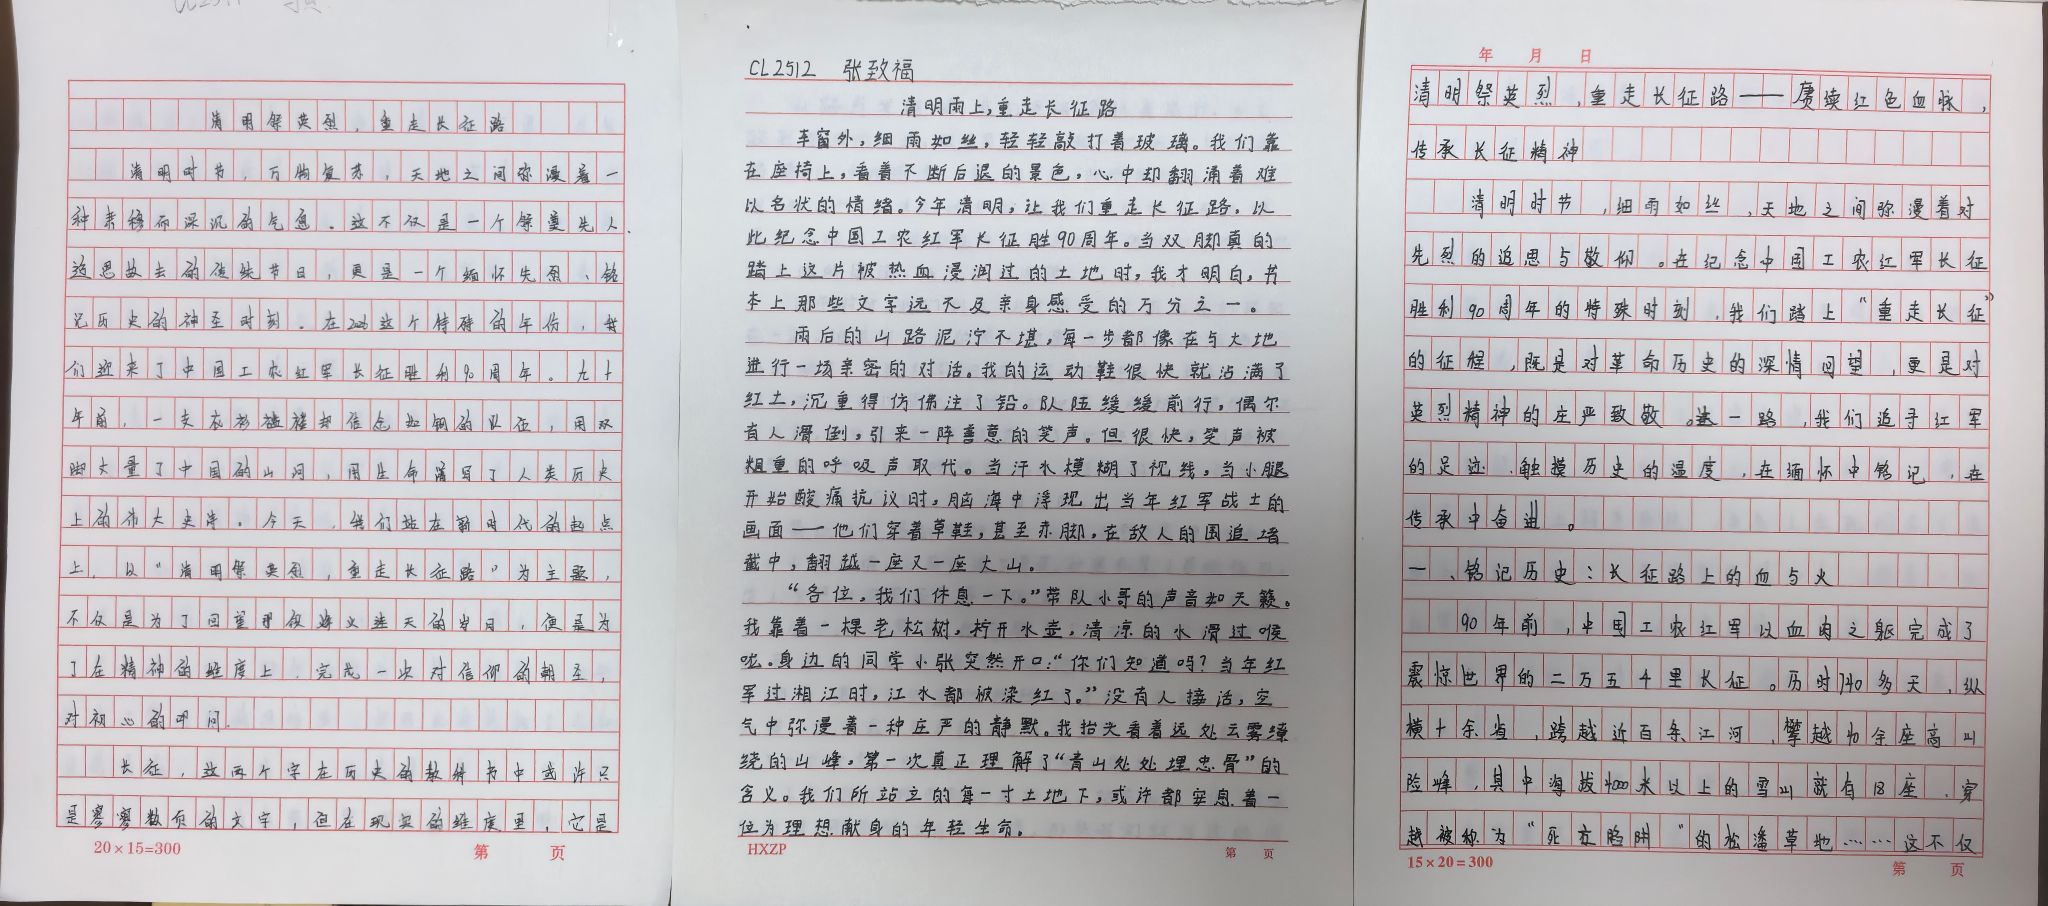 清明祭英烈，重走长征路
清明时节，万物复苏，天地之间弥漫着一
种肃穆而深沉的气息。这不仅是一个祭奠先人、
追思故去的传统节日，更是一个缅怀先烈、铭
记历史的神圣时刻。在2026这个特殊的年份，我
们迎来了中国工农红军长征胜利90周年。九十
年前，一支衣衫褴褛却信念如钢的队伍，用双
脚丈量了中国的山河，用生命谱写了人类历史
上的伟大史诗。今天，我们站在新时代的起点
上，以“清明祭英烈，重走长征路”为主题，
不仅是为了回望那段烽火连天的岁月，便是为
了在精神的维度上，完成一次对信仰的朝圣，
对初心的叩问。
长征，这两个字在历史的教科书中或许只
是寥寥数页的文字，但在现实的维度里，它是
20×15=300 第 页
CL2512 张致福
清明雨上，重走长征路
车窗外，细雨如丝，轻轻敲打着玻璃。我们靠
在座椅上，看着不断后退的景色，心中却翻涌着难
以名状的情绪。今年清明，让我们重走长征路，以
此纪念中国工农红军长征胜90周年。当双脚真的
踏上这片被热血浸润过的土地时，我才明白，书
本上那些文字远不及亲身感受的万分之一。
雨后的山路泥泞不堪，每一步都像在与大地
进行一场亲密的对话。我的运动鞋很快就沾满了
红土，沉重得仿佛注了铅。队伍缓缓前行，偶尔
有人滑倒，引来一阵善意的笑声。但很快，笑声被
粗重的呼吸声取代。当汗水模糊了视线，当小腿
开始酸痛抗议时，脑海中浮现出当年红军战士的
画面——他们穿着草鞋，甚至赤脚，在敌人的围追堵
截中，翻越一座又一座大山。
“各位，我们休息一下。”带队小哥的声音如天籁。
我靠着一棵老松树，拧开水壶，清凉的水滑过喉
咙。身边的同学小张突然开口：“你们知道吗？当年红
军过湘江时，江水都被染红了。”没有人接话，空
气中弥漫着一种庄严的静默。我抬头看着远处云雾缭
绕的山峰，第一次真正理解了“青山处处埋忠骨”的
含义。我们所站立的每一寸土地下，或许都安息着一
位为理想献身的年轻生命。
HXZP 第 页
年 月 日
清明祭英烈，重走长征路——赓续红色血脉，
传承长征精神
清明时节，细雨如丝，天地之间弥漫着对
先烈的追思与敬仰。在纪念中国工农红军长征
胜利90周年的特殊时刻，我们踏上“重走长征”
的征程，既是对革命历史的深情回望，更是对
英烈精神的庄严致敬。这一路，我们追寻红军
的足迹、触摸历史的温度，在缅怀中铭记，在
传承中奋进。
一、铭记历史：长征路上的血与火
90年前，中国工农红军以血肉之躯完成了
震惊世界的二万五千里长征。历时740多天，纵
横十余省，跨越近百条江河，攀越40余座高山
险峰，其中海拔4000米以上的雪山就有18座，穿
越被称为“死亡陷阱”的松潘草地……这不仅
15×20=300 第 页